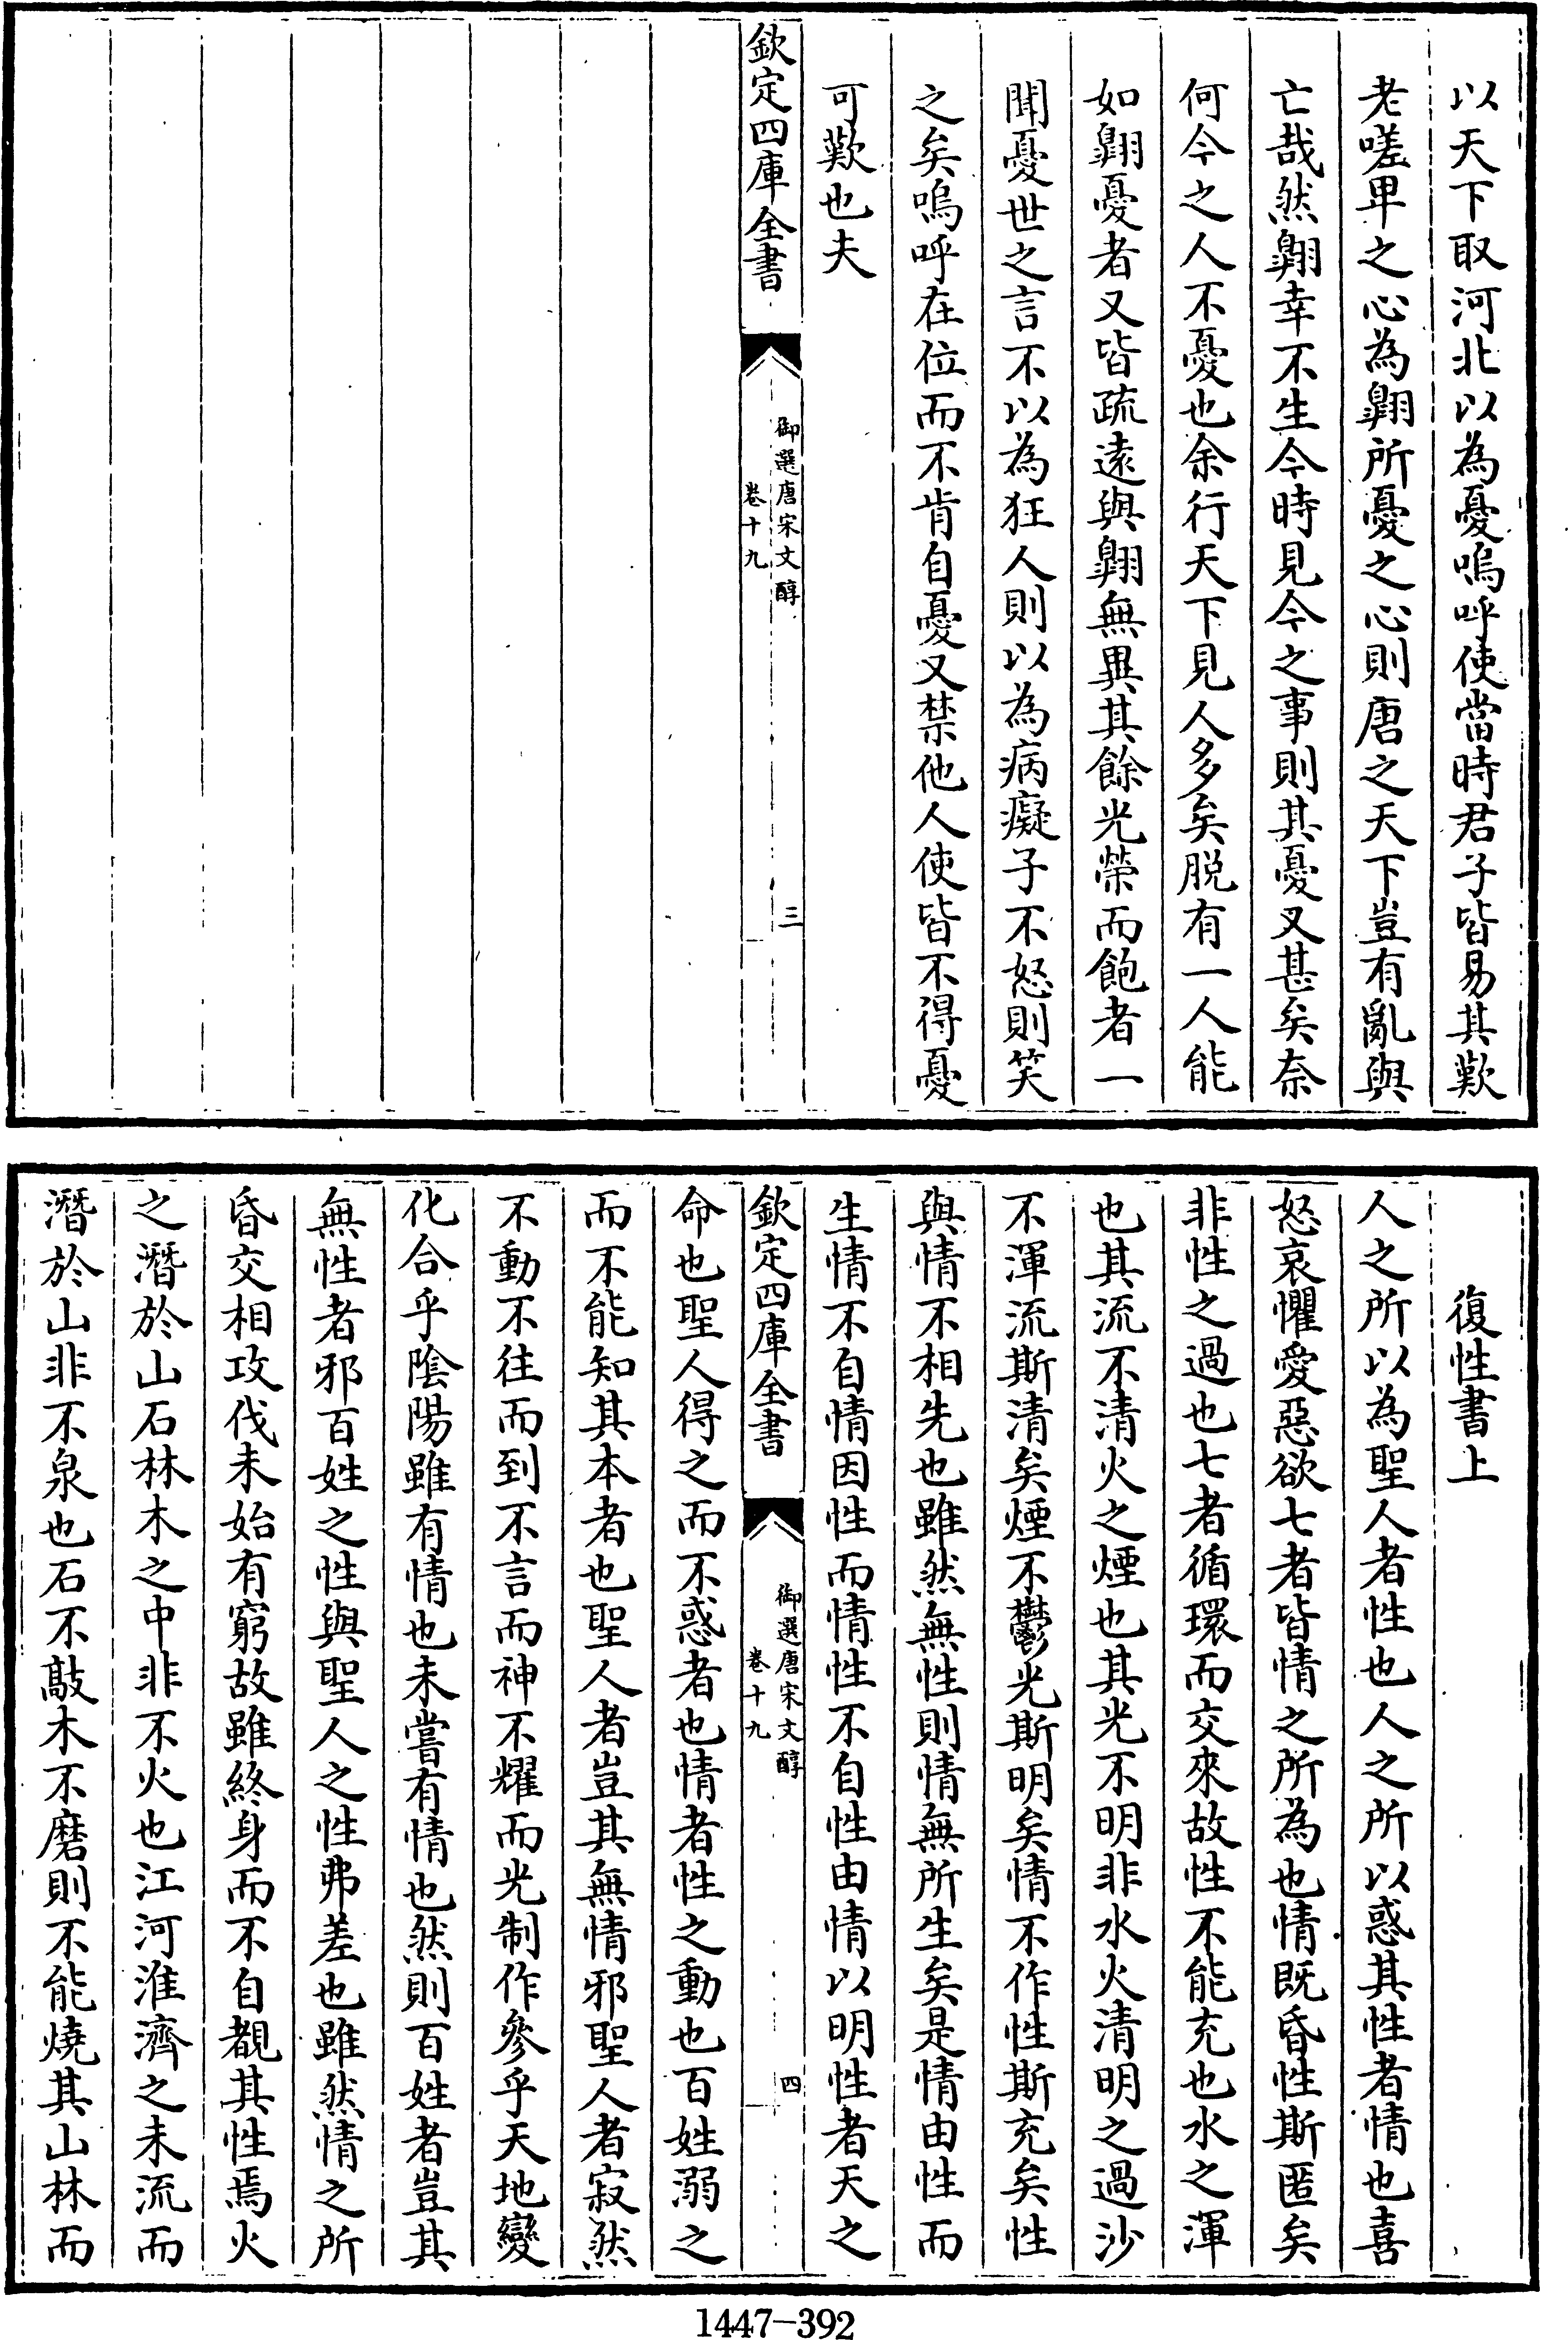 以天下取河北以為憂嗚呼使當時君子皆易其歎
老嗟卑之心為翺所憂之心則唐之天下豈有亂與
亡哉然翺幸不生今時見今之事則其憂又甚矣奈
何今之人不憂也余行天下見人多矣脱有一人能
如翺憂者又皆疏遠與翺無異其餘光榮而飽者一
聞憂世之言不以為狂人則以為病癡子不怒則笑
之矣嗚呼在位而不肯自憂又禁他人使皆不得憂
可歎也夫
欽定四庫全書
御選唐宋文醇
卷十九
三
復性書上
人之所以為聖人者性也人之所以惑其性者情也喜
怒哀懼愛惡欲七者皆情之所為也情既昏性斯匿矣
非性之過也七者循環而交來故性不能充也水之渾
也其流不清火之煙也其光不明非水火清明之過沙
不渾流斯清矣煙不鬱光斯明矣情不作性斯充矣性
與情不相先也雖然無性則情無所生矣是情由性而
生情不自情因性而情性不自性由情以明性者天之
欽定四庫全書
御選唐宋文醇
卷十九
四
命也聖人得之而不惑者也情者性之動也百姓溺之
而不能知其本者也聖人者豈其無情邪聖人者寂然
不動不往而到不言而神不耀而光制作參乎天地變
化合乎陰陽雖有情也未嘗有情也然則百姓者豈其
無性者邪百姓之性與聖人之性弗差也雖然情之所
昏交相攻伐未始有窮故雖終身而不自覩其性焉火
之潛於山石林木之中非不火也江河淮濟之未流而
潛於山非不泉也石不敲木不磨則不能燒其山林而
1447-392